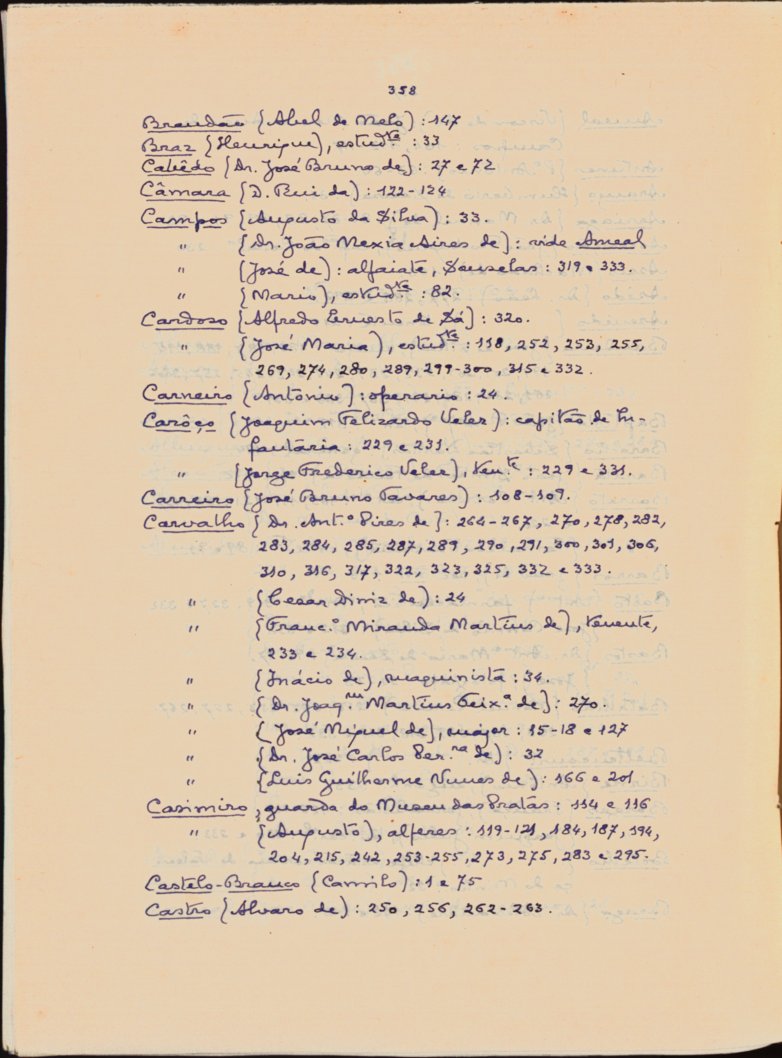 358
Brandão (Abel de Melo) : 147
Braz (Henrique), estudte : 33
Cabêdo (Dr. José Bruno de) : 27 e 72
Câmara (D. Rui da) : 122-124
Campos (Augusto da Silva) : 33.
" (Dr. João Mexia Aires de) : vide Ameal
" (José de) : alfaiate, Souselas : 319 e 333.
" (Mario), estudte : 82.
Cardoso (Alfredo Ernesto de Sá) : 320.
" (José Maria), estudte. : 118, 252, 253, 255,
269, 274, 280, 289, 299-300, 315 e 332.
Carneiro (António) : operario : 24.
Carôço (Joaquim Felizardo Velez) : capitão de In-
fantaria : 229 e 231.
" (Jorge Frederico Velez), tente : 229 e 331.
Carreiro (José Bruno Tavares) : 108-109.
Carvalho (Dr. Ant.º Pires de) : 264-267, 270, 278, 282,
283, 284, 285, 287, 289, 290, 291, 300, 301, 306,
310, 316, 317, 322, 323, 325, 332 e 333.
" (Cesar Diniz de) : 24
" (Franc.º Miranda Martins de), tenente,
233 e 234.
" (Inácio de), maquinista : 34.
" (Dr. Joaq.m Martins Teix.a de) : 270.
" (José Miguel de), major : 15-18 e 127
" (Dr. José Carlos Per.ra de) : 32
" (Luis Guilherme Nunes de) : 166 e 201
Casimiro, guarda do Museu das Pratas : 114 e 116
" (Augusto), alferes : 119-121, 184, 187, 194,
204, 215, 242, 253-255, 273, 275, 283 e 295.
Castelo-Branco (Camilo) : 1 e 75
Castro (Alvaro de) : 250, 256, 262-263.